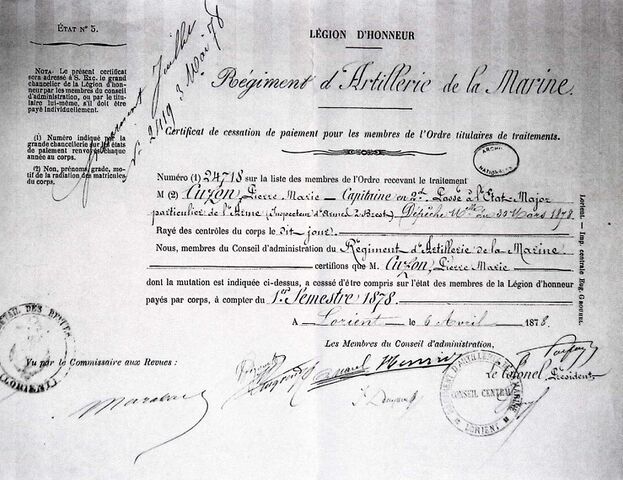 ÉTAT N° 5.
NOTA: Le présent certificat
sera adressé à S. Exc. le grand
chancelier de la Légion d'honneur
par les membres du conseil
d'administration, ou par le ti-
tulaire lui-même, s'il doit être
payé individuellement.
(1) Numéro indiqué par la
grande chancellerie sur les états
de paiement renvoyés chaque
année au corps.
(2) Nom, prénoms, grade, mo-
tif de la radiation des matricules
du corps.
N° 2419 3 Mai 78
LÉGION D'HONNEUR
Régiment d'Artillerie de la Marine.
Certificat de cessation de paiement pour les membres de l'Ordre titulaires de traitements.
ARCHIVES NATIONALES
Numéro (1) 24718 sur la liste des membres de l'Ordre recevant le traitement
M (2) Cuzon, Pierre Marie - Capitaine en 2d. Classe à l'État-Major
particulier de l'Arme (Inspecteur d'Armes à Brest) Dépêche Mlle du 30 Mars 1878.
Rayé des contrôles du corps le dit jour
Nous, membres du Conseil d'administration du Régiment d'Artillerie de la Marine
certifions que M. Cuzon, Pierre Marie
dont la mutation est indiquée ci-dessus, a cossé d'être compris sur l'état des membres de la Légion d'honneur
payés par corps, à compter du 1er Semestre 1878.
A Lorient le 6 Avril 1878.
Les Membres du Conseil d'administration,
Vu par le Commissaire aux Revues:
Le Colonel, Président
DÉTAIL DES REVUES
(LORIENT)
RÉGIMENT D'ARTILLERIE DE MARINE
CONSEIL CENTRAL
LORIENT
Lorient. — Imp. centrale Eug. GROUHEL